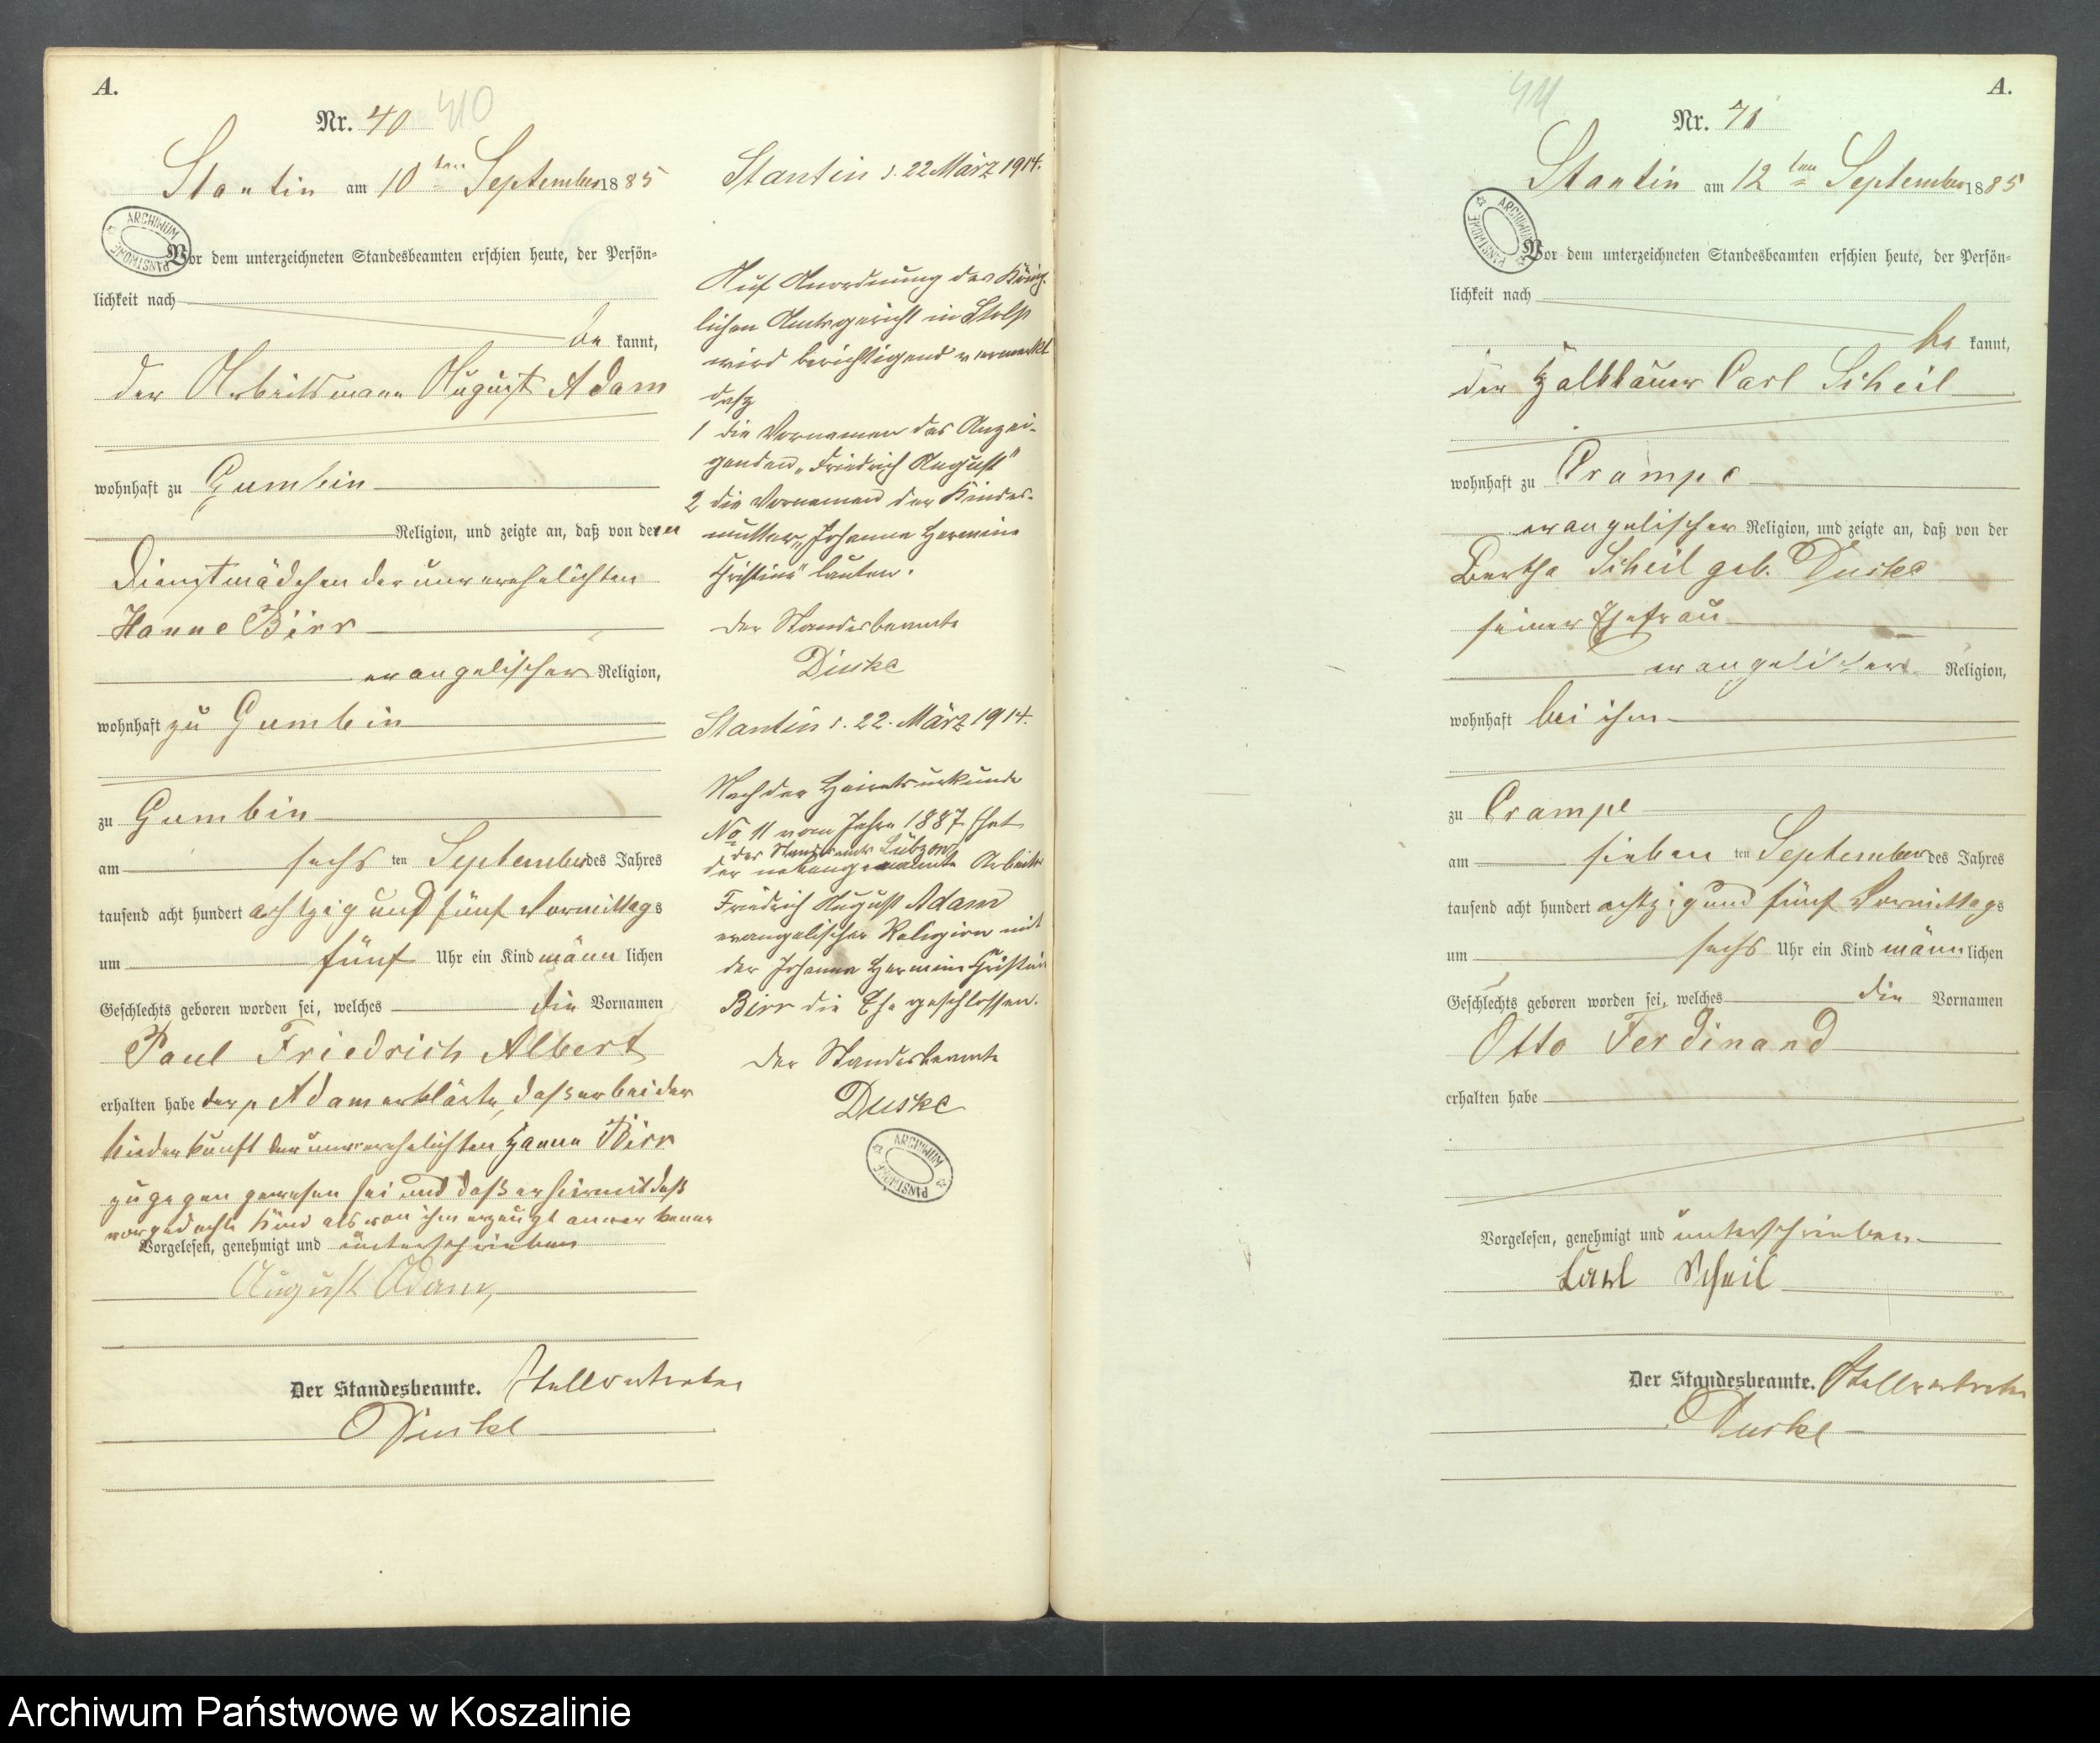 A.
Nr. 40 40
Stantin am 10ten September 1885
Vor dem unterzeichneten Standesbeamten erschien heute, der Persön-
lichkeit nach
be kannt,
der Arbeitsmann August Adam
wohnhaft zu Gumbin
Religion, und zeigte an, daß von der
Dienstmädchen der unverehelichten
Hanne Birr
evangelischer Religion,
wohnhaft zu Gumbin
zu Gumbin
am sechs ten September des Jahres
tausend acht hundert achtzig und fünf Vormittags
um fünf Uhr ein Kind männ lichen
Geschlechts geboren worden sei, welches die Vornamen
Paul Friedrich Albert
erhalten habe der p Adam erklärte, daß er bei der
Niederkunft der unverehelichten Hanne Birr
zugegen gewesen sei und daß er hiermit daß
vorgedachte Kind als von ihm erzeugt anner kenne
Vorgelesen, genehmigt und unterschrieben
August Adam
Der Standesbeamte. Stellvertreter
Duske
Stantin d. 22 März 1914.
Auf Anordnung des König-
lichen Amtsgericht in Stolp
wird berichtigend vermerkt
daß
1 die Vornamen des Anzei-
genden „Friedrich August"
2 die Vornamen der Kindes-
mutter „Johanne Hermine
Christine" lauten.
Der Standesbeamte
Duske
Stantin d. 22. März 1914.
Nach der Heiratsurkunde
No 11 vom Jahre 1887 hat
des Standesamts Lübzow
der nebengenannte Arbeiter
Friedrich August Adam
evangelischer Religion mit
der Johanna Hermine Christine
Birr die Ehe geschlossen.
Der Standesbeamte
Duske
ARCHIWUM PAŃSTWOWE
A.
41
Nr. 41
Stantin am 12ten September 1885
Vor dem unterzeichneten Standesbeamten erschien heute, der Persön-
lichkeit nach
be kannt,
der Halbbauer Carl Scheil
wohnhaft zu Crampe
evangelischer Religion, und zeigte an, daß von der
Bertha Scheil geb. Duske
seiner Ehefrau
evangelischer Religion,
wohnhaft bei ihm
zu Crampe
am sieben ten September des Jahres
tausend acht hundert achtzig und fünf Vormittags
um sechs Uhr ein Kind männ lichen
Geschlechts geboren worden sei, welches die Vornamen
Otto Ferdinand
erhalten habe
Vorgelesen, genehmigt und unterschrieben
Carl Scheil
Der Standesbeamte. Stellvertreter
Duske
Archiwum Państwowe w Koszalinie